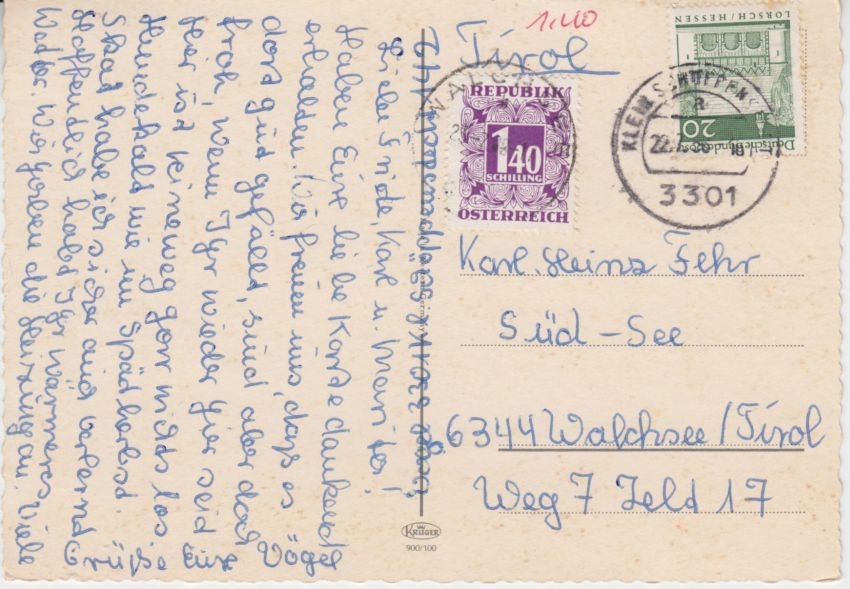 Liebe Friede, Karl u. Marita!
Haben Eure liebe Karte dankend
erhalten. Wir freuen uns, dass es
dort gut gefällt, sind aber doch
froh, wenn Ihr wieder hier seid
Hier ist keineweg gar nichts los
Hundekalt wie im Spätherbst.
Skat habe ich sicher auch verlernt
Hoffentlich habt Ihr wärmeres
Wetter. Wir haben die Heizung an. Viele
Grüße Eure
Vögel
1.40
Tirol
LORSCH/HESSEN
20
Deutsche Bundespost
KLEIN SCHÖPPENS
a
22.
18
3301
WALCHSEE
REPUBLIK
1 40
SCHILLING
ÖSTERREICH
Karl-Heinz Fehr
Süd-See
6344 Walchsee/Tirol
Weg 7 Feld 17
KRÜGER
900/100